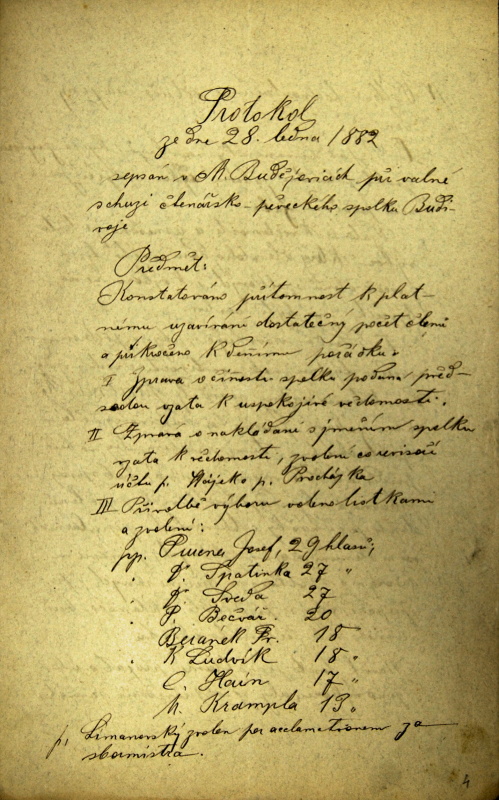 Protokol
ze dne 28. ledna 1882
sepsán v M. Budějovicích při valné
schůzi čtenářsko-pěveckého spolku Budi-
voje
Předmět:
Konstatována přítomnost k plat-
nému uzavírání dostatečný počet členů
a přikročeno k dennímu pořádku.
I Zpráva o činosti spolku podána před-
sedou vzata k uspokojivé vědomosti.
II Zpráva o nakládání s jměním spolku
vzata k vědomosti, zvoleni co revisoři
účtů p. Hájek p. Procházka
III Při volbě výboru voleno lístkami
a zvoleni:
pp. Josef, 29 hlasů;
Špatinka 27 "
Šveda 27
P. Bečvář 20
Beránek Fr. 18
K Ludvík 18 "
C. Hain 17 "
Krampla 13 "
p. Limanovský zvolen per acclamationem za
sbormistra.
4